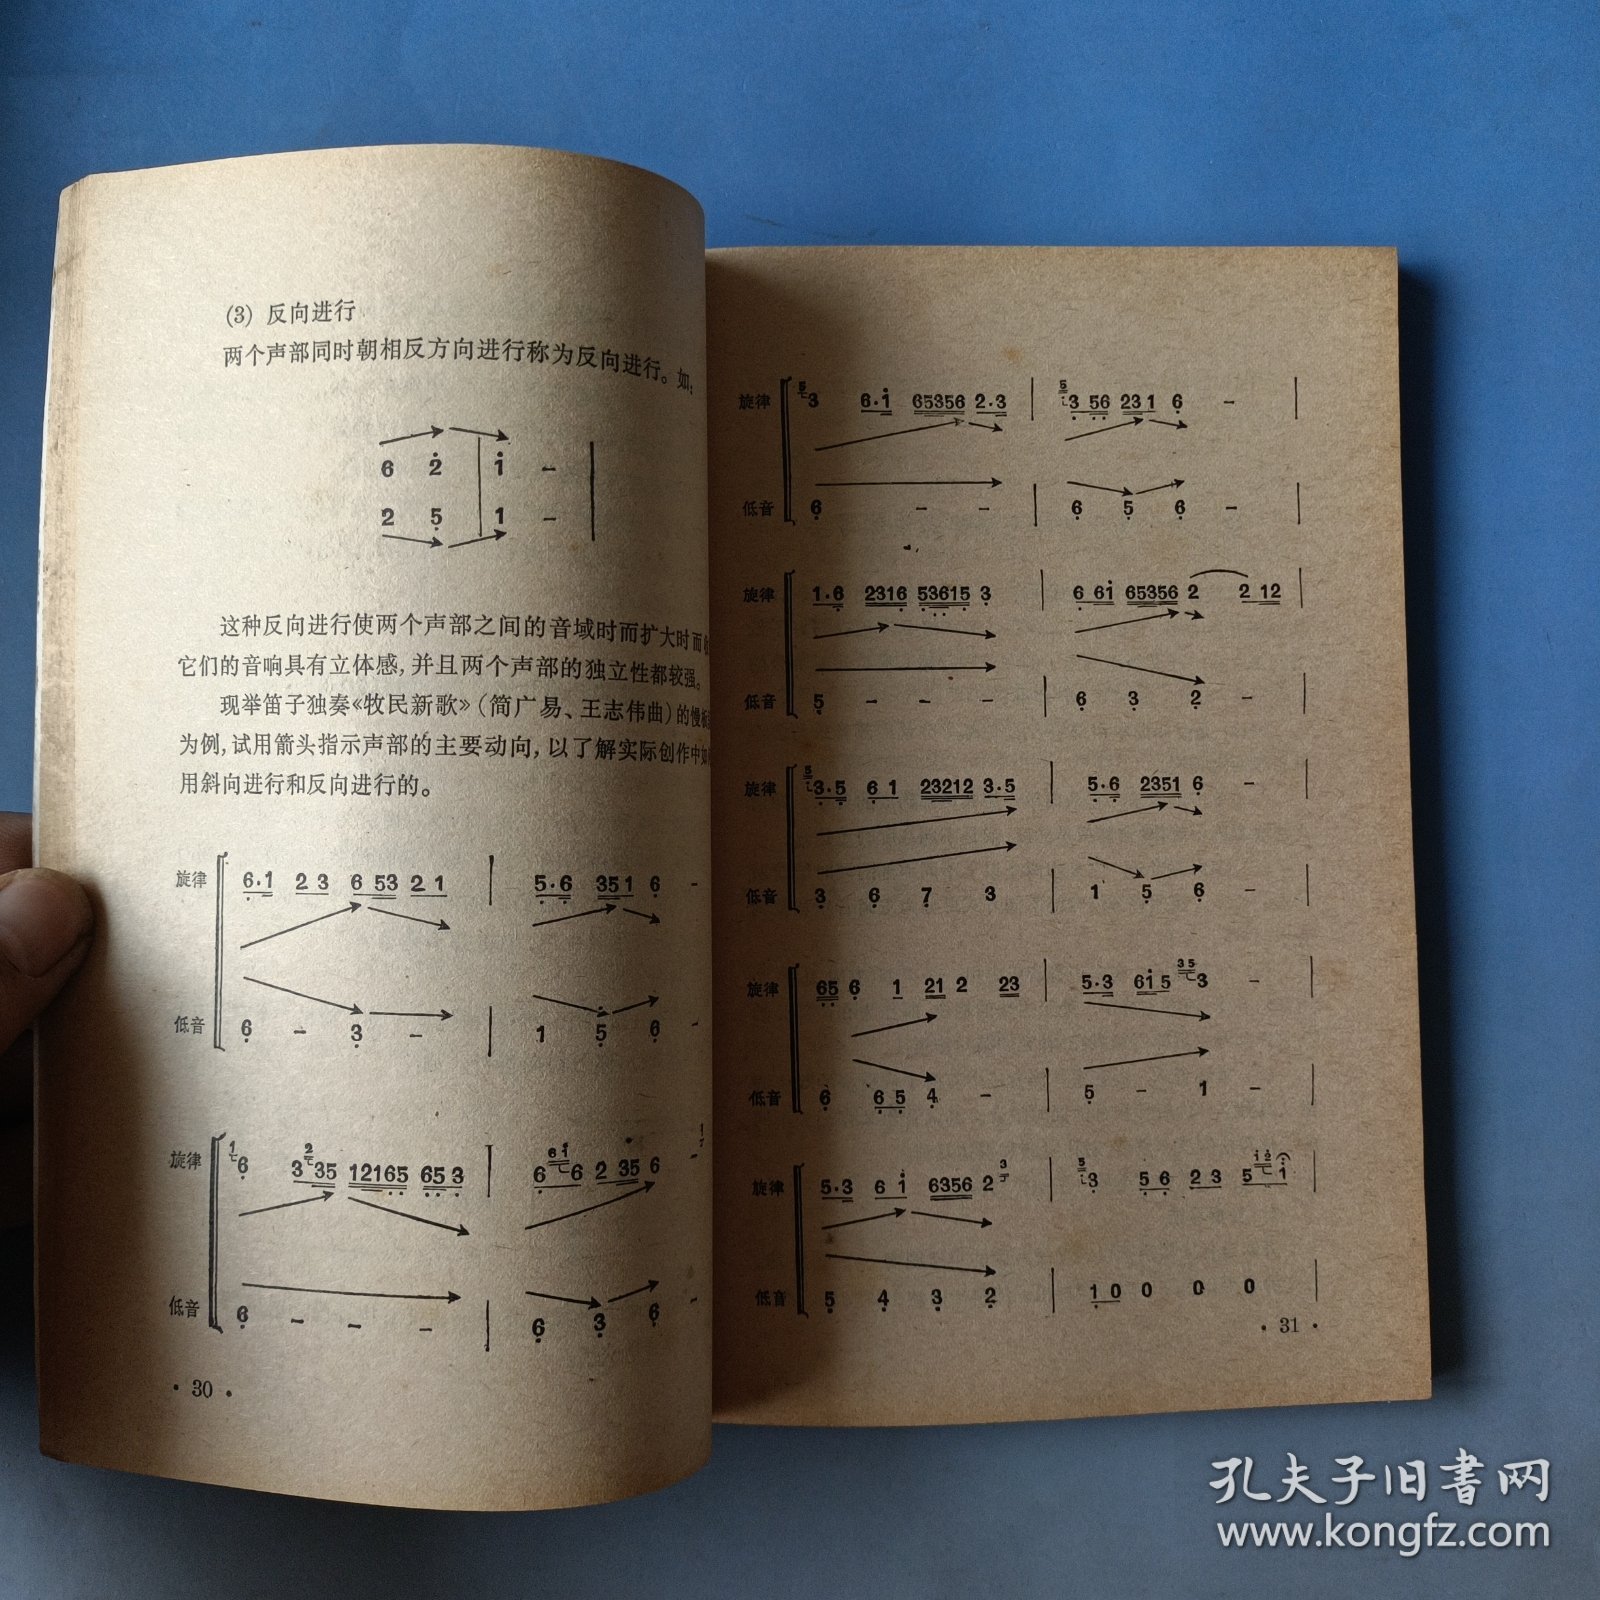 (3) 反向进行
两个声部同时朝相反方向进行称为反向进行。如:
6 2̇ | i̇ –
2 5̣ | 1 –
这种反向进行使两个声部之间的音域时而扩大时而
它们的音响具有立体感,并且两个声部的独立性都较强。
现举笛子独奏《牧民新歌》(简广易、王志伟曲)的慢板
为例,试用箭头指示声部的主要动向,以了解实际创作中如
用斜向进行和反向进行的。
旋律 6̣·1 2 3 6 53 2 1 | 5̣·6̣ 351 6̣ –
低音 6̣ – 3̣ – | 1 5̣ 6̣ –
旋律 1 6̣ 3 2 35 12165 65 3 | 6 6i 6 2 35 6 –
低音 6̣ – – – | 6̣ 3̣ 6̣ –
· 30 ·
旋律 5 3 6·i̇ 65356 2·3 | 5 3 56 231 6̣ –
低音 6̣ – – | 6̣ 5̣ 6̣ –
旋律 1·6̣ 2316 53615 3 | 6 6i̇ 65356 2 2 12
低音 5̣ – – – | 6̣ 3̣ 2̣ –
旋律 5 3·5 6̣ 1 23212 3·5 | 5̣·6̣ 2351 6̣ –
低音 3̣ 6̣ 7̣ 3 | 1 5̣ 6̣ –
旋律 65 6̣ 1 21 2 23 | 5·3 6i̇5 35 3 –
低音 6̣ 6̣ 5̣ 4̣ – | 5̣ – 1 –
旋律 5·3 6 i̇ 6356 2 3 | 5 3 5̣ 6̣ 2 3 5 i̇2̇ i̇
低音 5̣ 4̣ 3̣ 2̣ | 1̣ 0 0 0 0
· 31 ·
孔夫子旧书网
www.kongfz.com